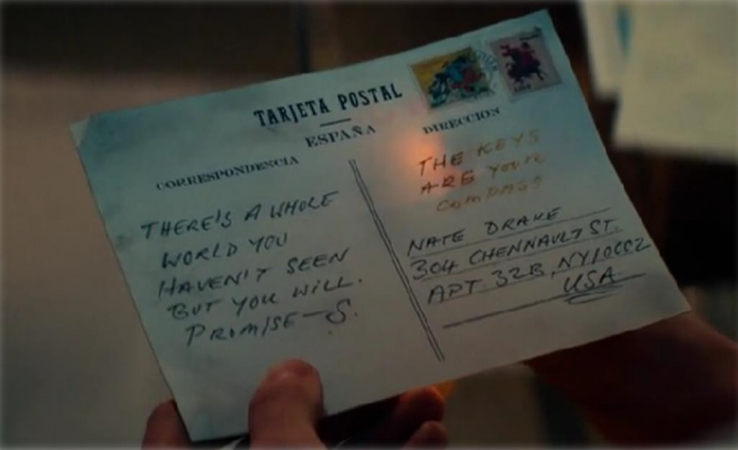 TARJETA POSTAL
ESPAÑA
CORRESPONDENCIA
DIRECCION
THERE'S A WHOLE
WORLD YOU
HAVEN'T SEEN
BUT YOU WILL.
PROMISE—S.
THE KEYS
ARE YOUR
COMPASS
NATE DRAKE
304 CHENNAULT ST.
APT. 32B, NY10002
USA